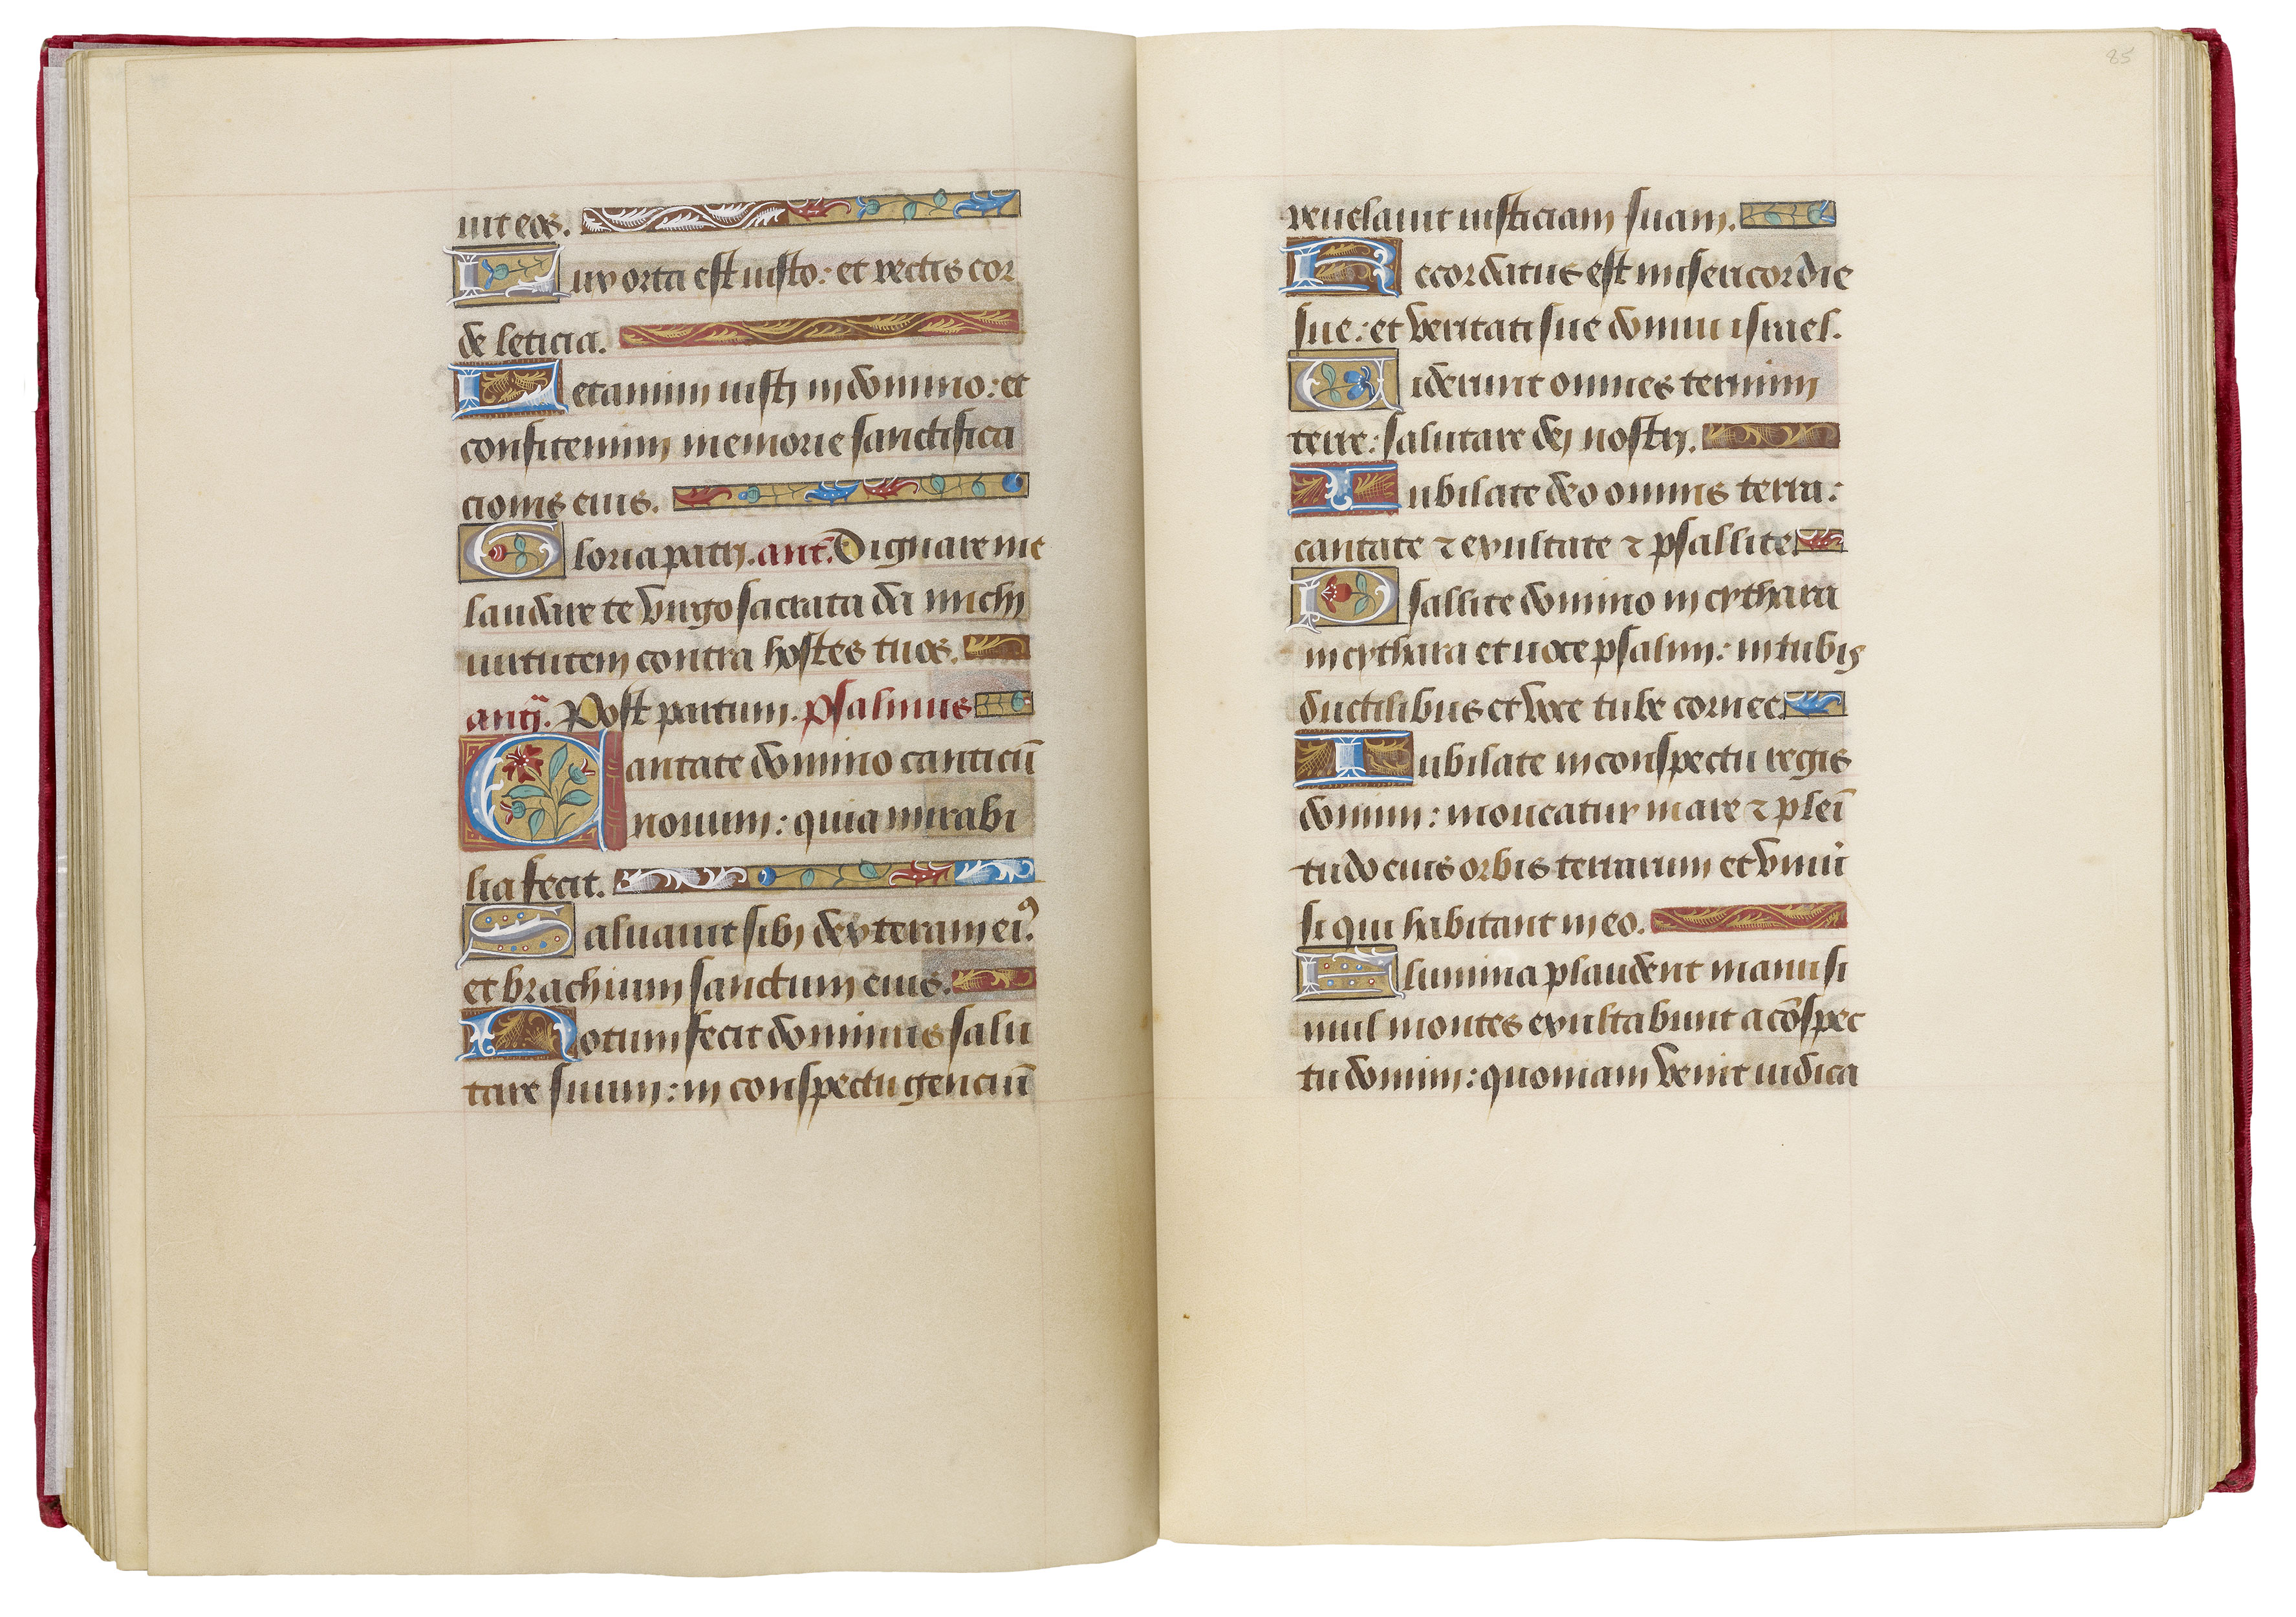 uit eos.
Lux orta est iusto: et rectis cor
de leticia.
Letamini iusti in domino: et
confitemini memorie sanctifica
cionis eius.
Gloria patri. ant̄. Dignare me
laudare te virgo sacrata da michi
virtutem contra hostes tuos.
antj̄. Post partum. psalmus
Cantate domino canticū
nouum: quia mirabi
lia fecit.
Saluauit sibi dexteram eiꝰ.
et brachium sanctum eius.
Notum fecit dominus salu
tare suum: in conspectu genciū
85
reuelauit iusticiam suam.
Recordatus est misericordie
sue: et veritati sue domui israel.
Uiderunt omnes termini
terre: salutare dei nostri.
Iubilate deo omnis terra:
cantate ⁊ exultate ⁊ psallite
Psallite domino in cythara
in cythara et uoce psalmi: in tubis
ductilibus et voce tube cornee.
Iubilate in conspectu regis
domini: moueatur mare ⁊ pleī
tudo eius orbis terrarum et vniū
si qui habitant in eo.
Flumina plaudent manu si
mul montes exultabunt a cōspec
tu domini: quoniam venit iudica